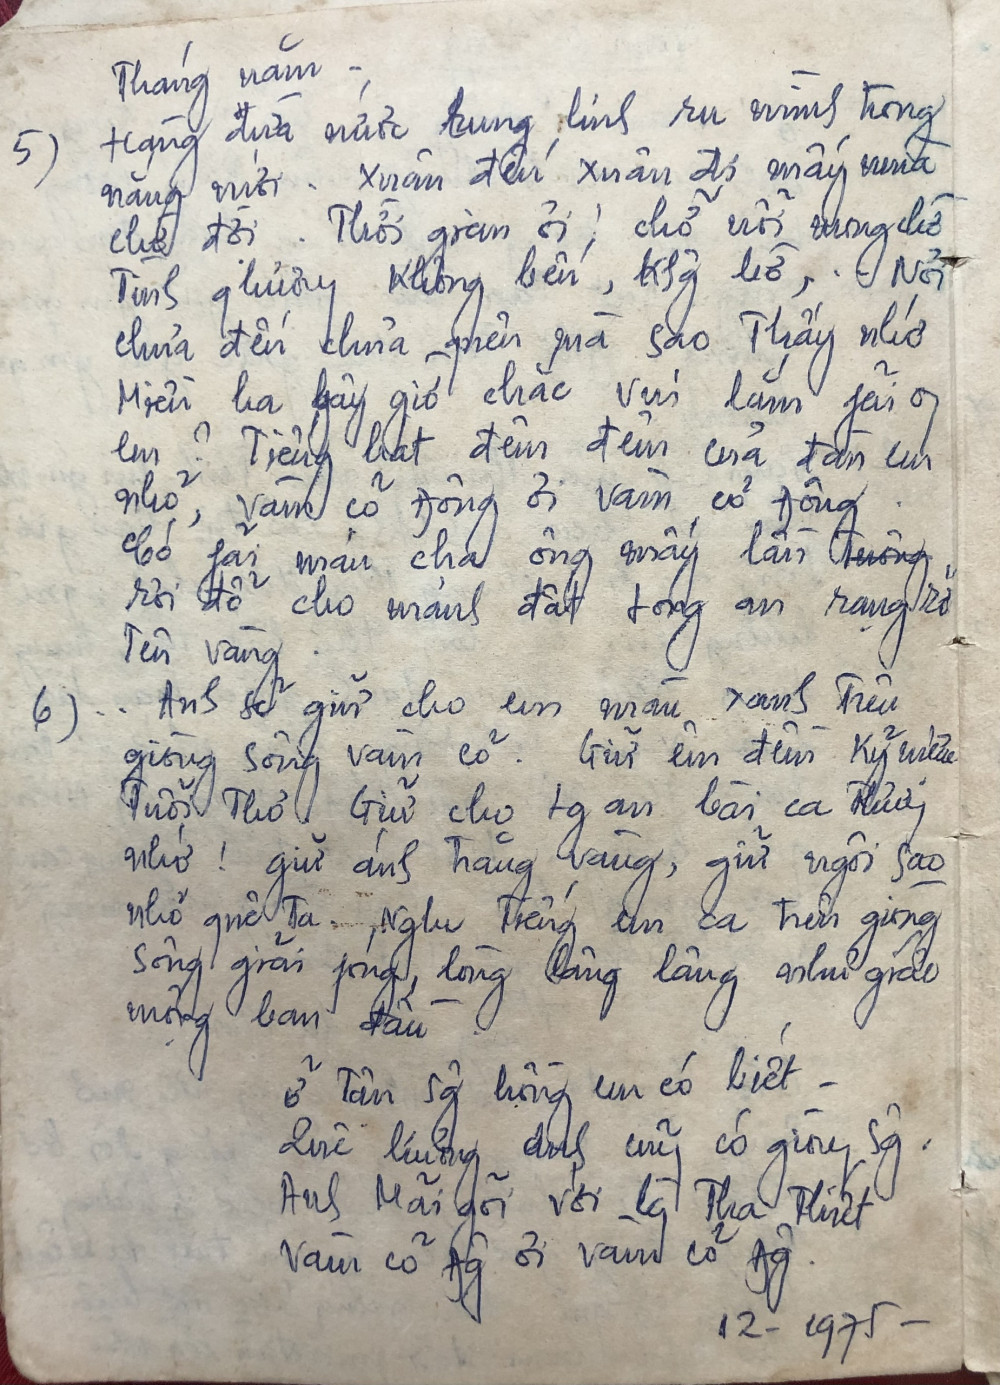 Tháng năm -
5) Hàng dừa nước rung rinh ru mình trong
nắng mới . Xuân đến xuân đi mấy mùa
chờ đợi . Thời gian ơi ! chở nỗi mong chờ
Tình thương không bến, Kg bờ, . - Nơi
chưa đến chưa quen mà sao Thấy nhớ
Miền ba bây giờ chắc vui lắm fải o
em ? Tiếng hát đêm đêm của đàn em
nhỏ, vàm cỏ Đông ơi vàm cỏ Đông .
Có fải máu cha ông mấy lần
rồi đổ cho mảnh đất Long an rạng rỡ
Tên vàng .
6) .. Anh sẽ giữ cho em màu xanh Trên
giòng sông vàm cỏ . Giữ êm đềm Kỷ niệm
Tuổi Thơ . Giữ cho Lg an bài ca
nhớ ! giữ ánh Trăng vàng, giữ ngôi sao
nhỏ quê Ta . Nghe Tiếng em ca trên giòng
sông giải fóng, lòng lâng lâng như giấc
mộng ban đầu
Ở Tân Sg hồng em có biết -
Quê hương anh cũng có giòng Sg .
Anh Mãi gọi với lg Tha Thiết
Vàm cỏ Đg ơi vàm cỏ Đg .
12 - 1975 -